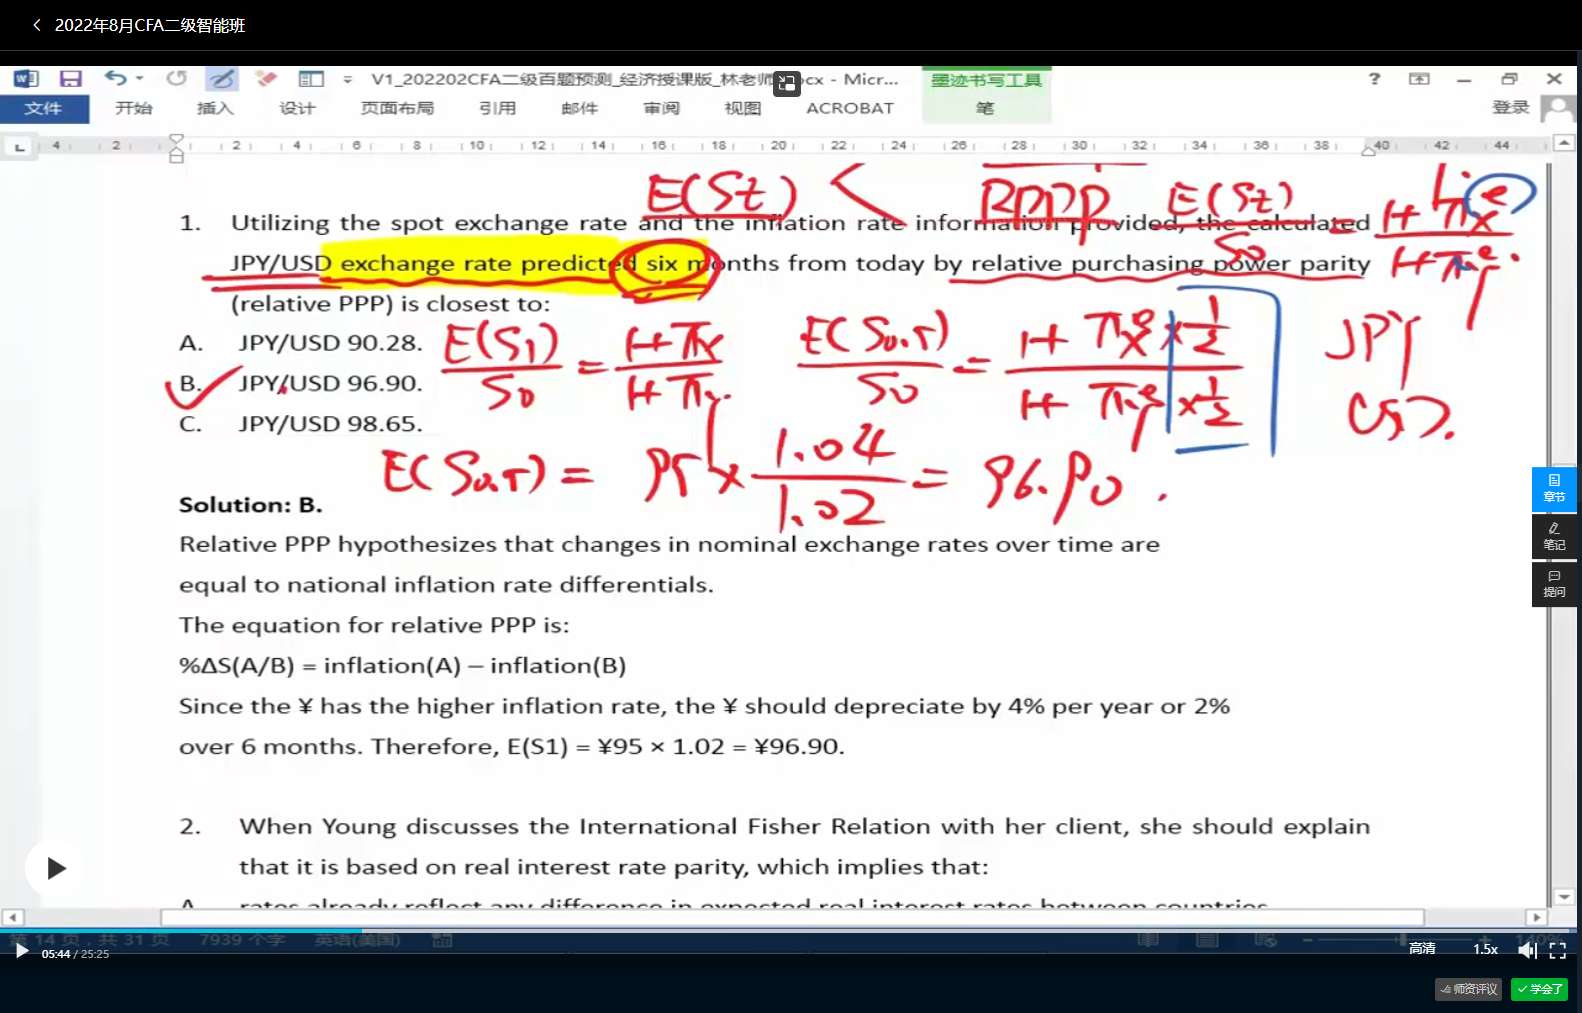 2022年8月CFA二级智能班
V1_202202CFA二级百题预测_经济授课版_林老师 cx - Micr...
墨迹书写工具
文件 开始 插入 设计 页面布局 引用 邮件 审阅 视图 ACROBAT 笔 登录
4 2 2 4 6 8 10 12 14 16 18 20 22 24 26 28 30 32 34 36 38 40 42 44
E(St) < RPPP E(St)/S0 =
1. Utilizing the spot exchange rate and the inflation rate information provided, the calculated
JPY/USD exchange rate predicted six months from today by relative purchasing power parity
(relative PPP) is closest to:
A. JPY/USD 90.28.
E(S1)/S0 = 1+πx/1+πy
E(S0.5)/S0 = 1+πx^e×1/2 / 1+πy^e×1/2
JPY
USD.
B. JPY/USD 96.90.
C. JPY/USD 98.65.
E(S0.5) = 95 × 1.04/1.02 = 96.90.
Solution: B.
Relative PPP hypothesizes that changes in nominal exchange rates over time are
equal to national inflation rate differentials.
The equation for relative PPP is:
%ΔS(A/B) = inflation(A) – inflation(B)
Since the ¥ has the higher inflation rate, the ¥ should depreciate by 4% per year or 2%
over 6 months. Therefore, E(S1) = ¥95 × 1.02 = ¥96.90.
2. When Young discusses the International Fisher Relation with her client, she should explain
that it is based on real interest rate parity, which implies that:
A. rates already reflect any difference in expected real interest rates between countries.
章节
笔记
提问
第 14 页，共 31 页 7939 个字 英语(美国) 140%
05:44 / 25:25 高清 1.5x
师资评议 学会了